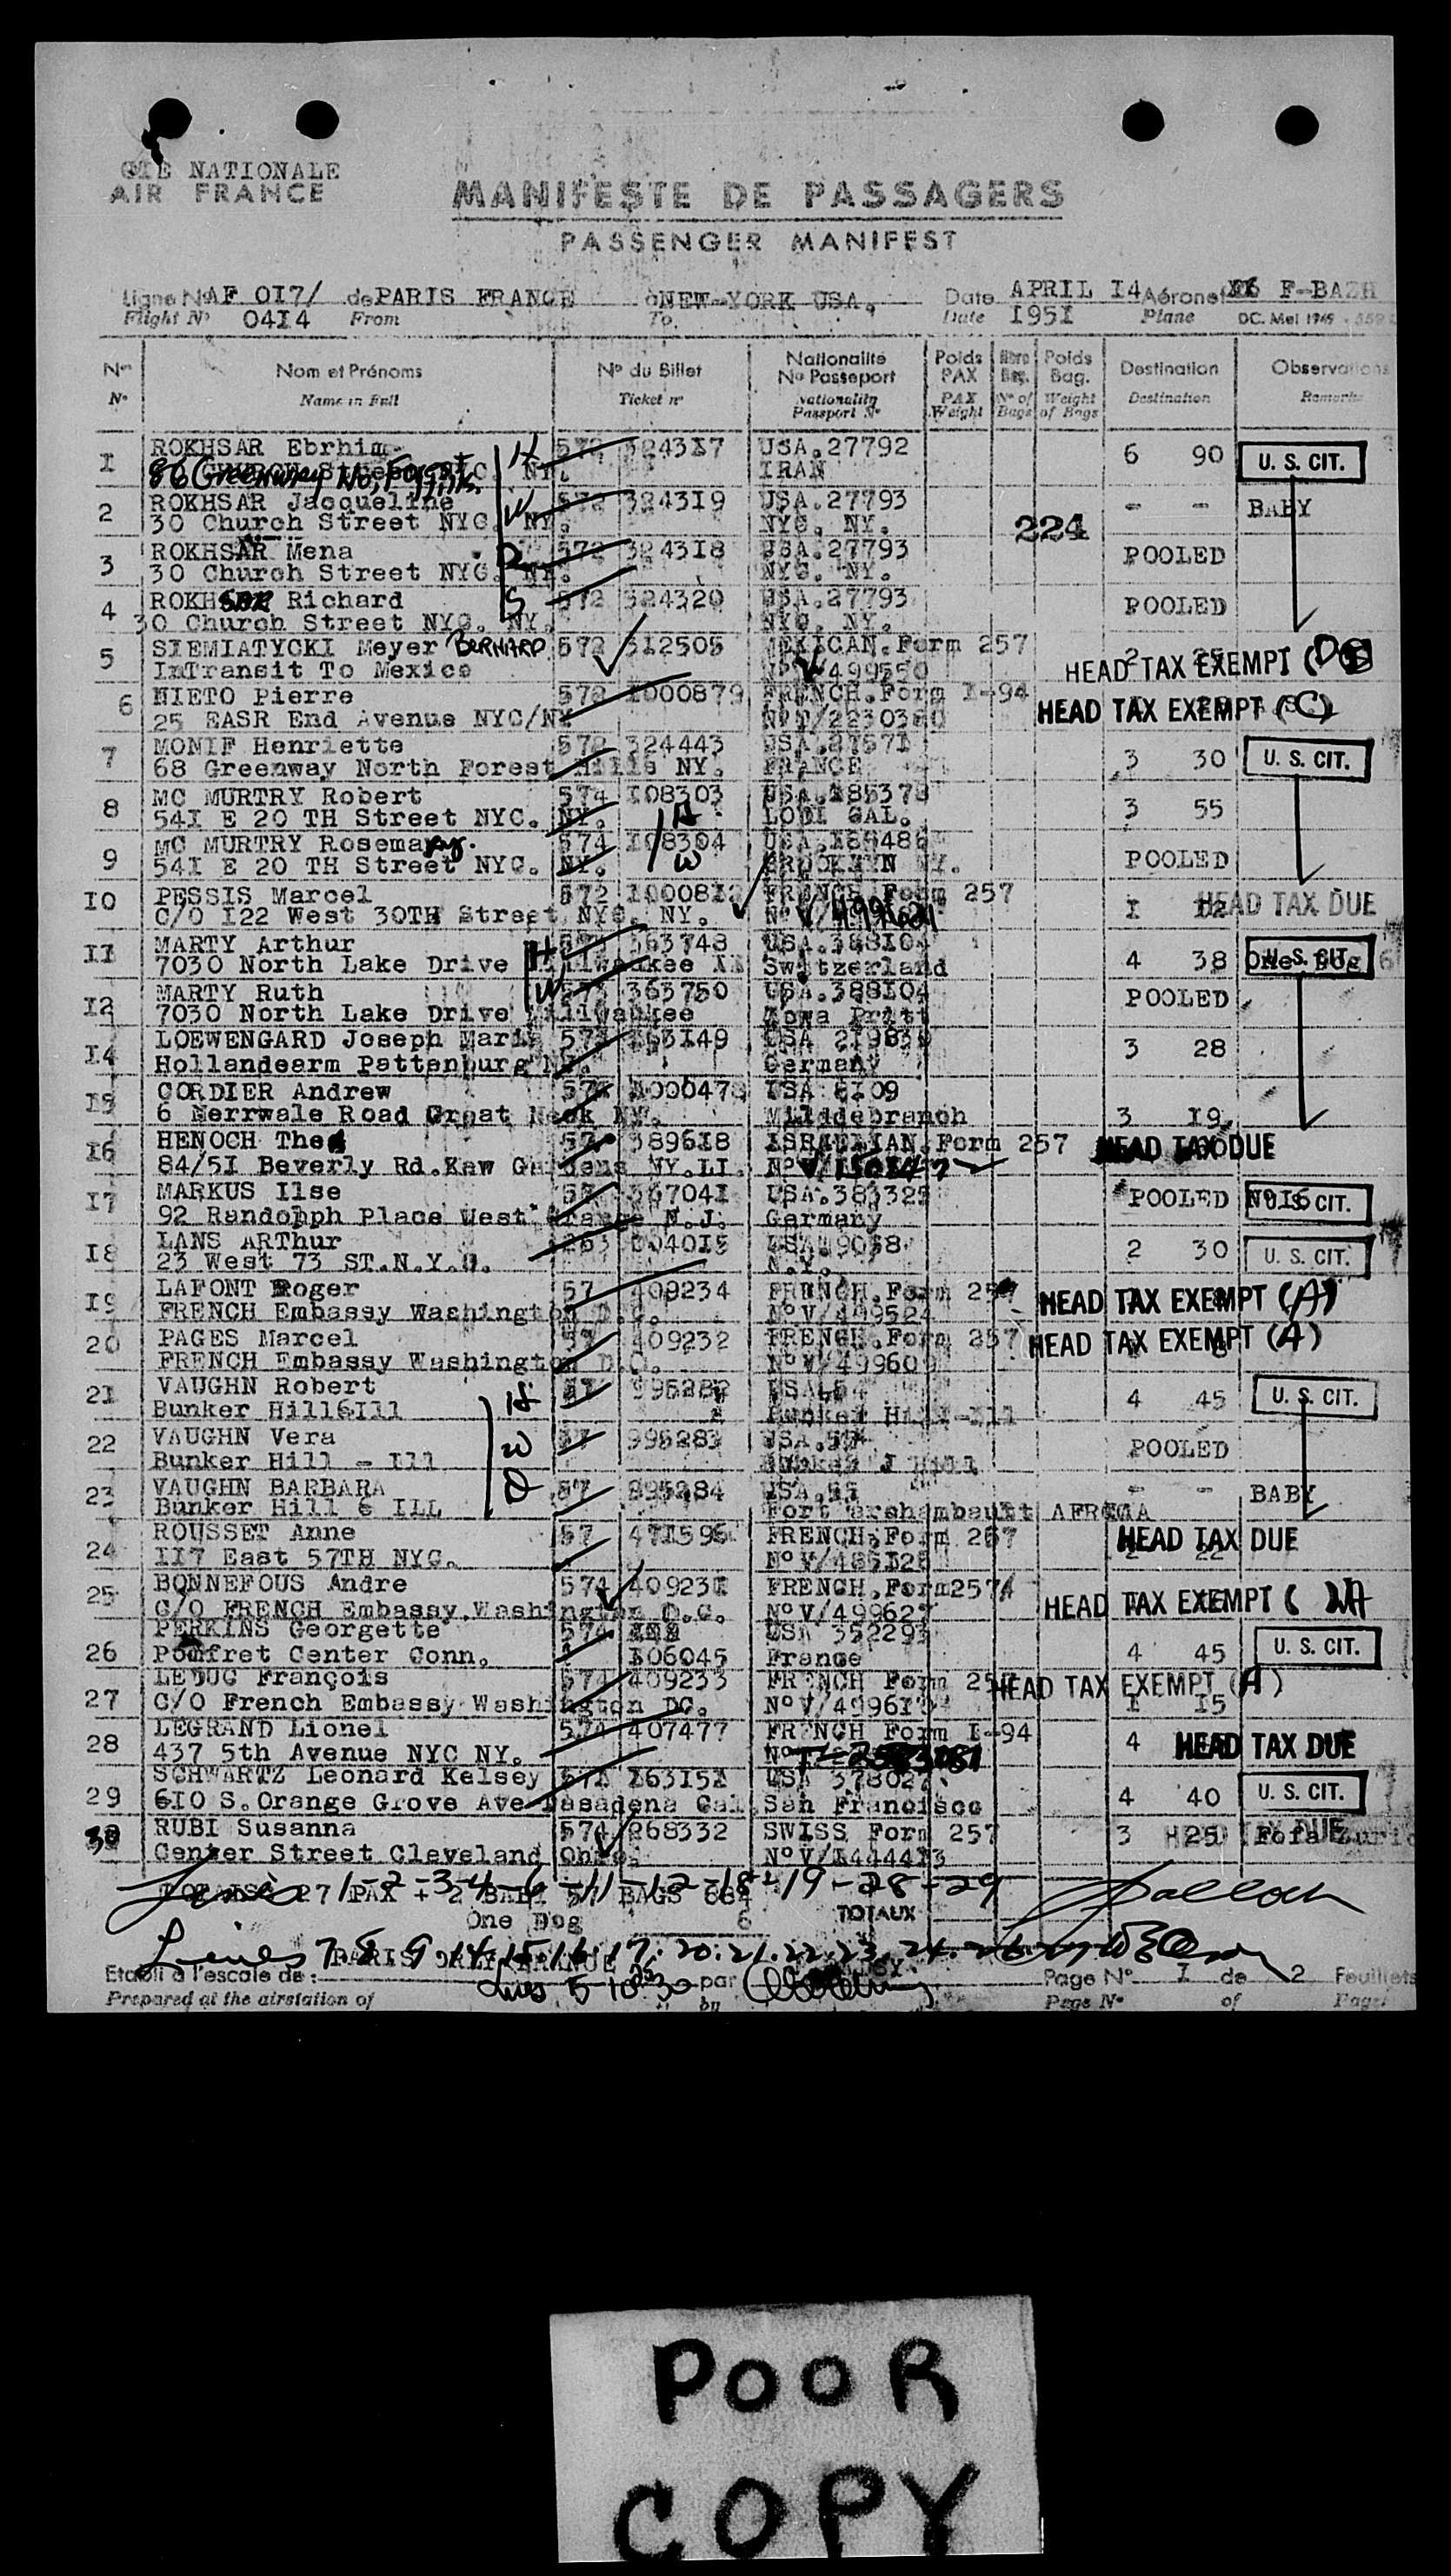 CIE NATIONALE
AIR FRANCE
MANIFESTE DE PASSAGERS
PASSENGER MANIFEST
Ligne No AF 0I7/ de PARIS FRANCE à NEW-YORK USA. Date APRIL I4 Aéronef F-BAZH
Flight No 04I4 From To Date I95I Plane DC. Mel 1949
Nos Nom et Prénoms No du Billet Nationalité No Passeport Poids PAX Nbre Bag. Poids Bag. Destination Observations
No Name in Full Ticket no Nationality Passport No PAX Weight No of Bags Weight of Bags Destination Remarks
I ROKHSAR Ebrhim H 572 3243I7 USA.27792 6 90 U. S. CIT.
86 Greenway No, Forest Hills NY. IRAN
2 ROKHSAR Jacqueline W 572 3243I9 USA.27793 - - BABY
30 Church Street NYC. NY. NYC. NY. 224
3 ROKHSAR Mena D 572 3243I8 USA.27793 POOLED
30 Church Street NYC. NY. NYC. NY.
4 ROKHSAR Richard S 572 324320 USA.27793 POOLED
30 Church Street NYC. NY. NYC. NY.
5 SIEMIATYCKI Meyer BERNARD 572 3I2505 MEXICAN.Form 257
InTransit To Mexico No V/499550 HEAD TAX EXEMPT (D
6 NIETO Pierre 572 I000879 FRENCH.Form I-94
25 EASR End Avenue NYC/NY HEAD TAX EXEMPT (C)
7 MONIF Henriette 572 324443 USA.2757I 3 30 U. S. CIT.
68 Greenway North Forest Hills NY. FRANCE
8 MC MURTRY Robert 574 I08303 3 55
54I E 20 TH Street NYC. NY. H LODI CAL.
9 MC MURTRY Rosemary. 574 I08304 POOLED
54I E 20 TH Street NYC. NY. W BROOKLYN NY.
I0 PESSIS Marcel 572 I0008I2 FRENCH Form 257 I HEAD TAX DUE
C/O I22 West 30TH Street NYC. NY. No V/
II MARTY Arthur H 363748 USA.388I04 4 38 One Dog 6 U. S. CIT.
7030 North Lake Drive Milwaukee Switzerland
I2 MARTY Ruth W 363750 USA.388I04 POOLED
7030 North Lake Drive Milwaukee Iowa
I4 LOEWENGARD Joseph 363I49 USA 3 28
Hollandearm Pattenburg Germany
I5 CORDIER Andrew USA 8I09
6 Merrwale Road Great Neck NY. 3 I9
I6 HENOCH Thea 3896I8 ISRAELIAN.Form 257 HEAD TAX DUE
84/5I Beverly Rd.Kaw Gardens NY.LI. No V/
I7 MARKUS Ilse 36704I USA.383325 POOLED No I6 U. S. CIT.
92 Randohph Place West Orange N.J. Germany
I8 LANS ARThur 2 30 U. S. CIT.
23 West 73 ST.N.Y.C. N.Y.
I9 LAFONT Roger 57 409234 FRENCH.Form 257 HEAD TAX EXEMPT (A)
FRENCH Embassy Washington D.C. No V/499524
20 PAGES Marcel 57 409232 FRENCH.Form 257 HEAD TAX EXEMPT (A)
FRENCH Embassy Washington D.C. No V/499609
2I VAUGHN Robert H 57 995282 4 45 U. S. CIT.
Bunker Hill6Ill Bunker Hill-Ill
22 VAUGHN Vera W 57 995283 POOLED
Bunker Hill - Ill Bunker Hill
23 VAUGHN BARBARA D 57 995284 - - BABY
Bunker Hill 6 ILL Fort archambault AFRICA
24 ROUSSET Anne 57 47I596 FRENCH.Form 257 HEAD TAX DUE
II7 East 57TH NYC. No V/
25 BONNEFOUS Andre 574 FRENCH.Form257
C/O FRENCH Embassy.Washington D.C. No V/49962 HEAD TAX EXEMPT (
26 PERKINS Georgette 574 USA 352293 4 45 U. S. CIT.
Pomfret Center Conn. I06045 France
27 LEDUC François 574 409233 FRENCH Form 257 HEAD TAX EXEMPT (A)
C/O French Embassy Washington DC. No V/49961 I I5
28 LEGRAND Lionel 574 407477 FRENCH Form I-94 4 HEAD TAX DUE
437 5th Avenue NYC NY. No
29 SCHWARTZ Leonard Kelsey USA 378027 4 40 U. S. CIT.
6I0 S.Orange Grove Ave Pasadena Cal. San Francisco
30 RUBI Susanna 574 268332 SWISS Form 257 3 25 HEAD TAX DUE
Center Street Cleveland Ohio. No V/I444I3
27 PAX + 2 BABY 57 BAGS
1-2-3-4-6-11-12-18-19-28-29
One Dog 6 TOTAUX
Lines 7. 8. 9. 14. 15. 16. 17. 20. 21. 22. 23. 24.
PARIS ORLY FRANCE
Etabli à l'escale de: par Page No I de 2 Feuillets
Prepared at the airstation of by Page No of Pages
Lines 5 10 25 30
POOR
COPY